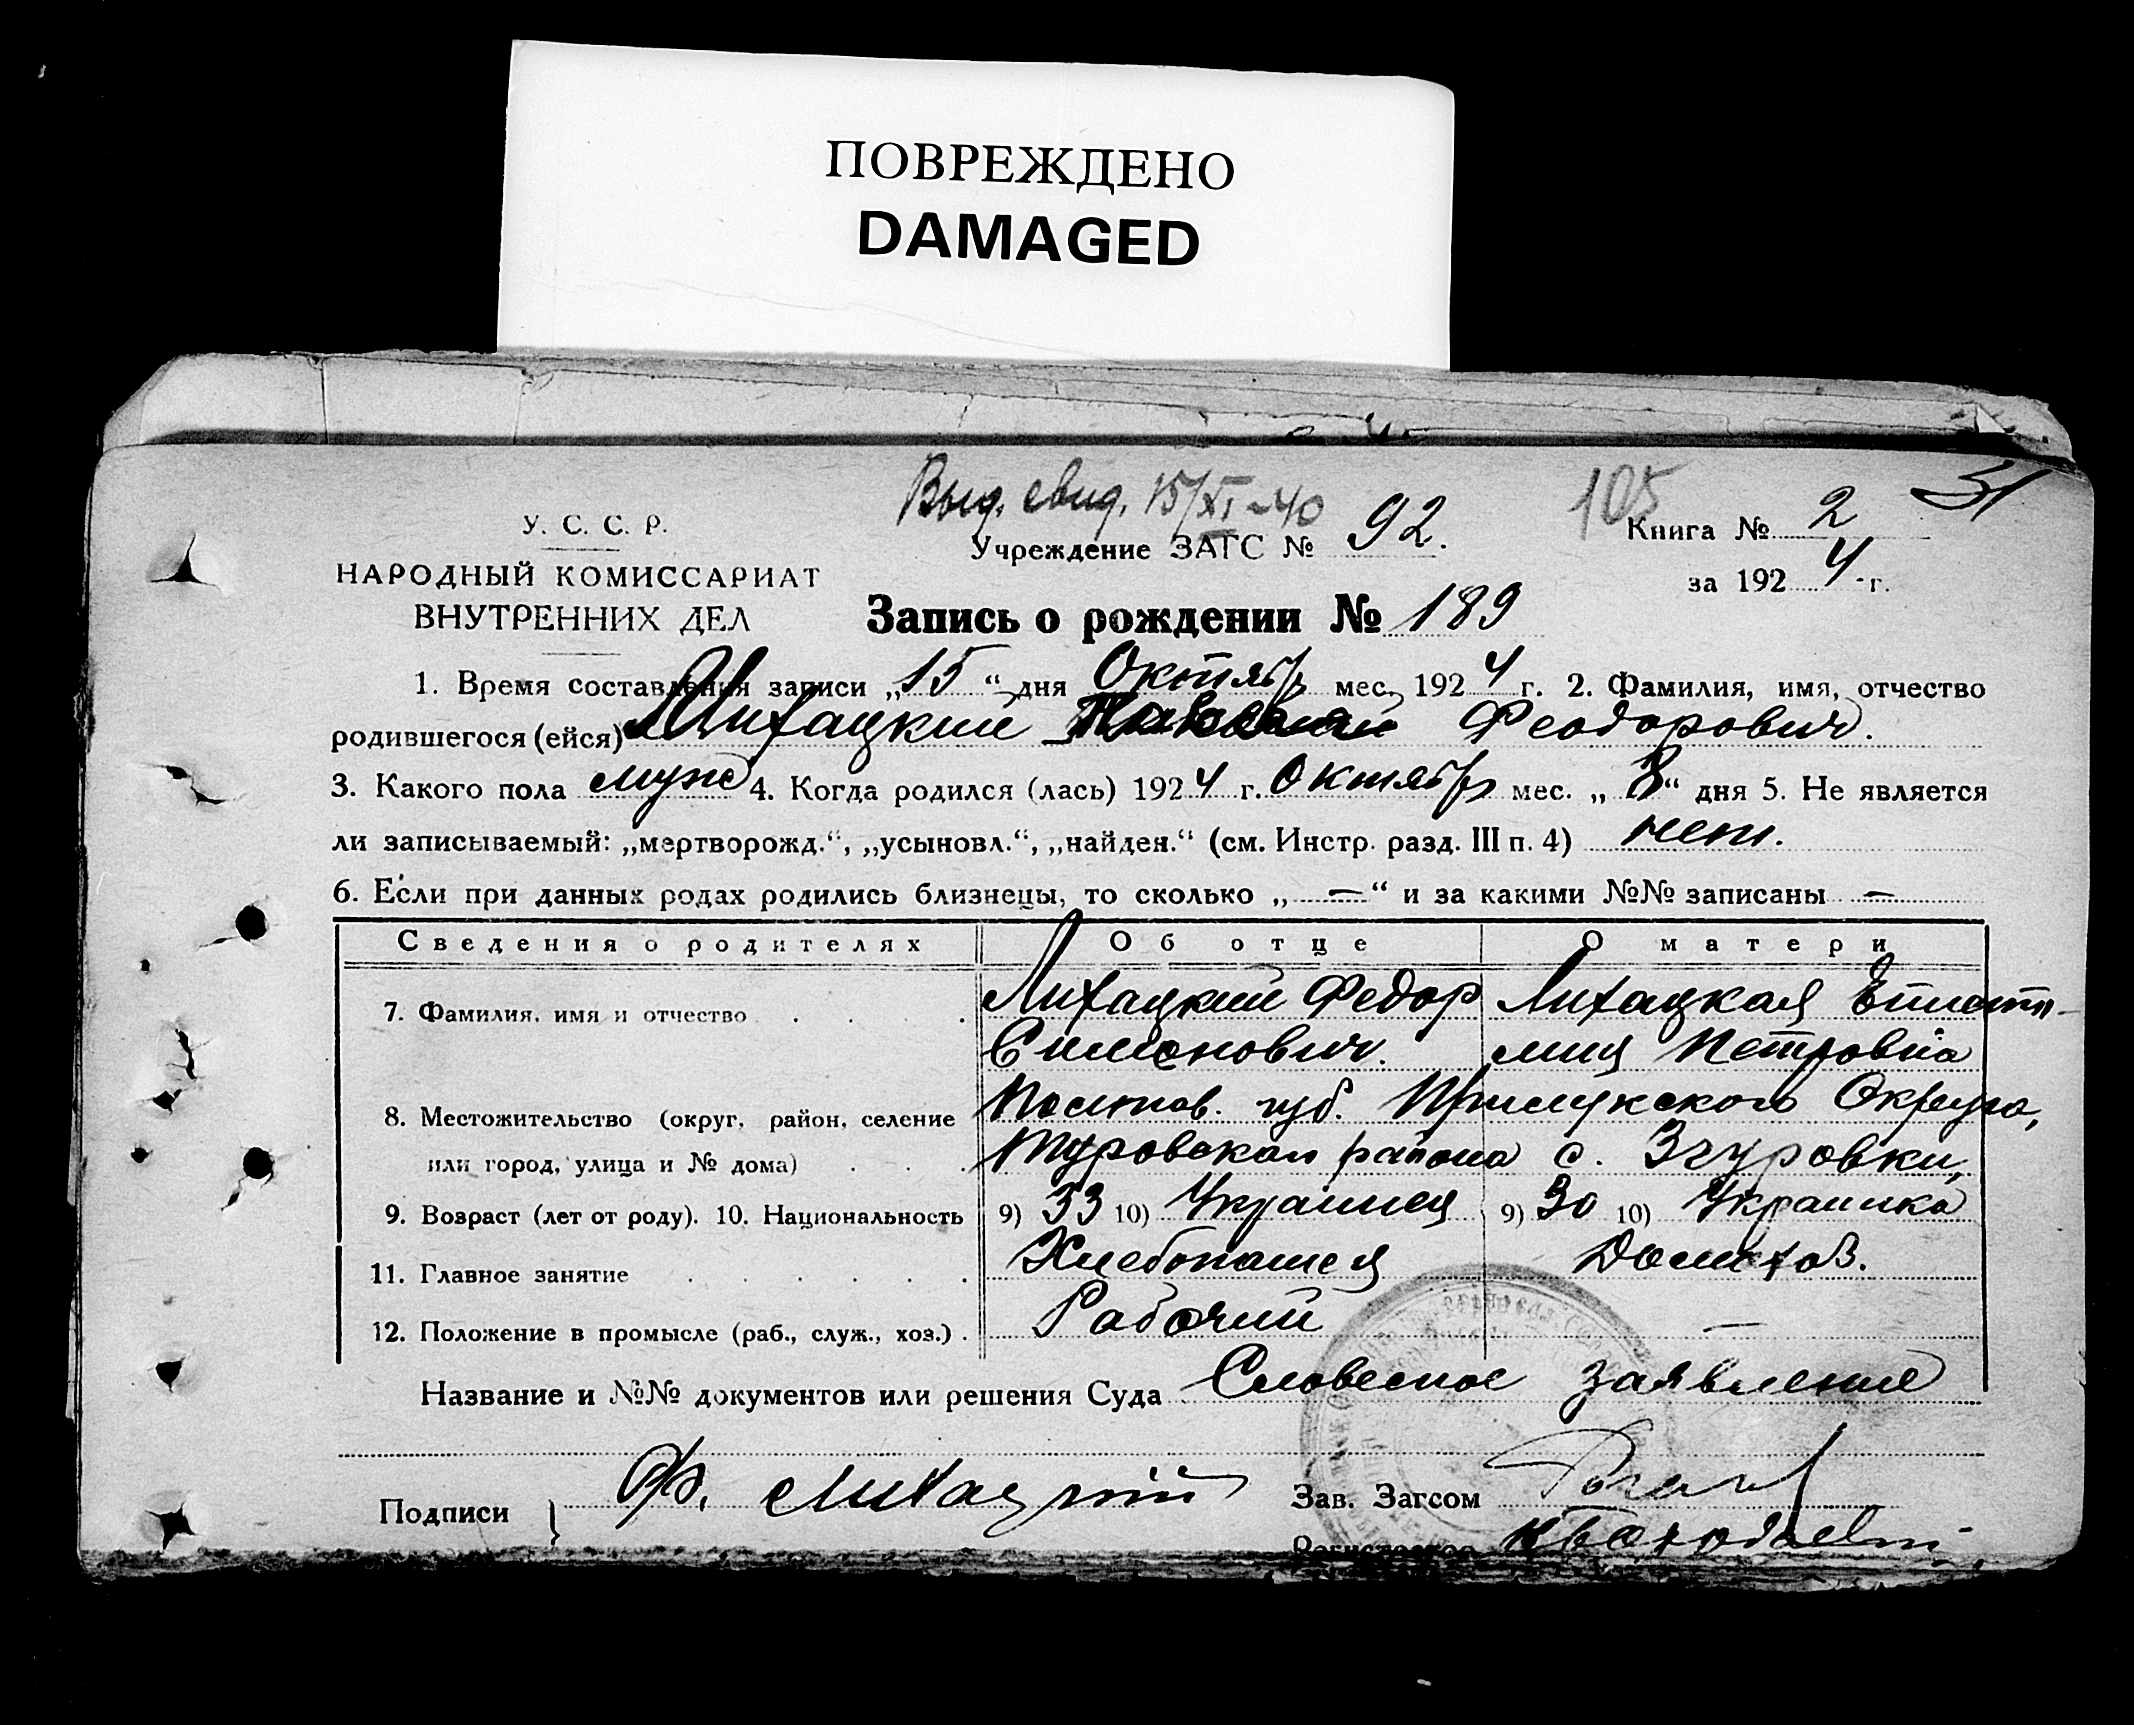 ПОВРЕЖДЕНО
DAMAGED
Выд. свид. 15/XI-40
105
31
У. С. С. Р.
НАРОДНЫЙ КОМИССАРИАТ
ВНУТРЕННИХ ДЕЛ
Учреждение ЗАГС № 92.
Книга № 2
за 1924 г.
Запись о рождении № 189
1. Время составления записи „15“ дня Октябр мес. 1924 г. 2. Фамилия, имя, отчество
родившегося (ейся) Лихацкий Феодорович.
3. Какого пола муж 4. Когда родился (лась) 1924 г. Октябр мес. „8“ дня 5. Не является
ли записываемый: „мертворожд.“, „усыновл.“, „найден.“ (см. Инстр. разд. III п. 4) нет.
6. Если при данных родах родились близнецы, то сколько „—“ и за какими №№ записаны —
Сведения о родителях Об отце О матери
7. Фамилия, имя и отчество Лихацкий Федор Лихацкая
Симонович. Петровна
8. Местожительство (округ, район, селение Полтав. губ. Прилукского Округа,
или город, улица и № дома) района с. Згуровки,
9. Возраст (лет от роду). 10. Национальность 9) 33 10) Украинец 9) 30 10) Украинка
11. Главное занятие Хлебопашец Домохоз.
12. Положение в промысле (раб., служ., хоз.) Рабочий —
Название и №№ документов или решения Суда Словесное заявление
Подписи } Ф. Лихацкий Зав. Загсом